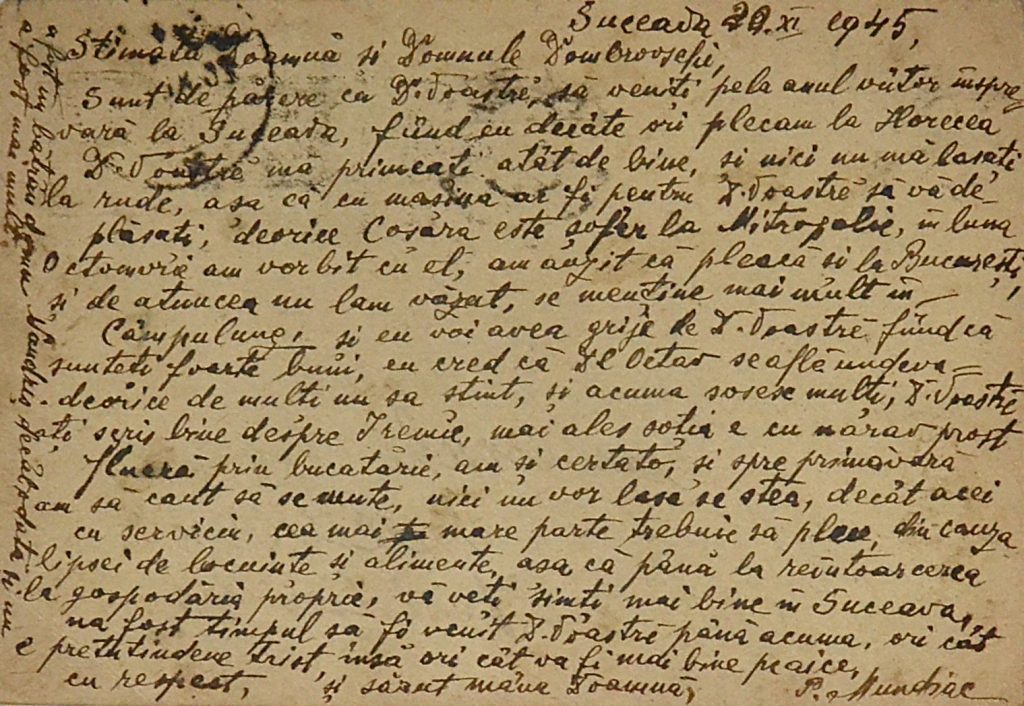 Suceava 20.XI 1945,
Stimată Doamnă si Domnule Dombrovschi,
Sunt de părere ca D. Voastră, să veniti pela anul viitor înspre
vară la Suceava, fiind eu decâte ori plecam la Horecea
D. Voastră mă primeati atât de bine, si nici nu mă lasati
la rude, asa că cu masina ar fi pentru D. Voastră să vă de
plăsati, deorice Cosăra este sofer la Mitropolie, în luna
Octomvrie am vorbit cu el, am auzit că pleacă si la București,
si de atuncea nu lam văzut, se mentine mai mult în
Câmpulung, si eu voi avea grije de D. Voastră fiind că
sunteti foarte buni, eu cred că Dl Octav se află undeva
deorice de multi nu sa stiut, si acuma sosesc multi, D. Voastră
ati scris bine despre Iremie, mai ales sotia e cu nărav prost
fluară prin bucatărie, am si certato, si spre primăvară
am să caut să se mute, nici nu vor lasa se stea, decât acei
cu serviciu, cea mai mare parte trebuie să plece, din cauza
lipsei de locuinte si alimente, asa că până la reîntoarcerea
la gospodăria proprie, vă veti simti mai bine în Suceava,
na fost timpul să fi venit D. Voastră până acuma, ori cât
e pretutindene trist, însă ori cât va fi mai bine pe aice,
cu respect, și sărut mâna Doamnă,
P. Mundiac
a fost un bătrân domn Săndriu decălboduta si nu
a fost mai mult.